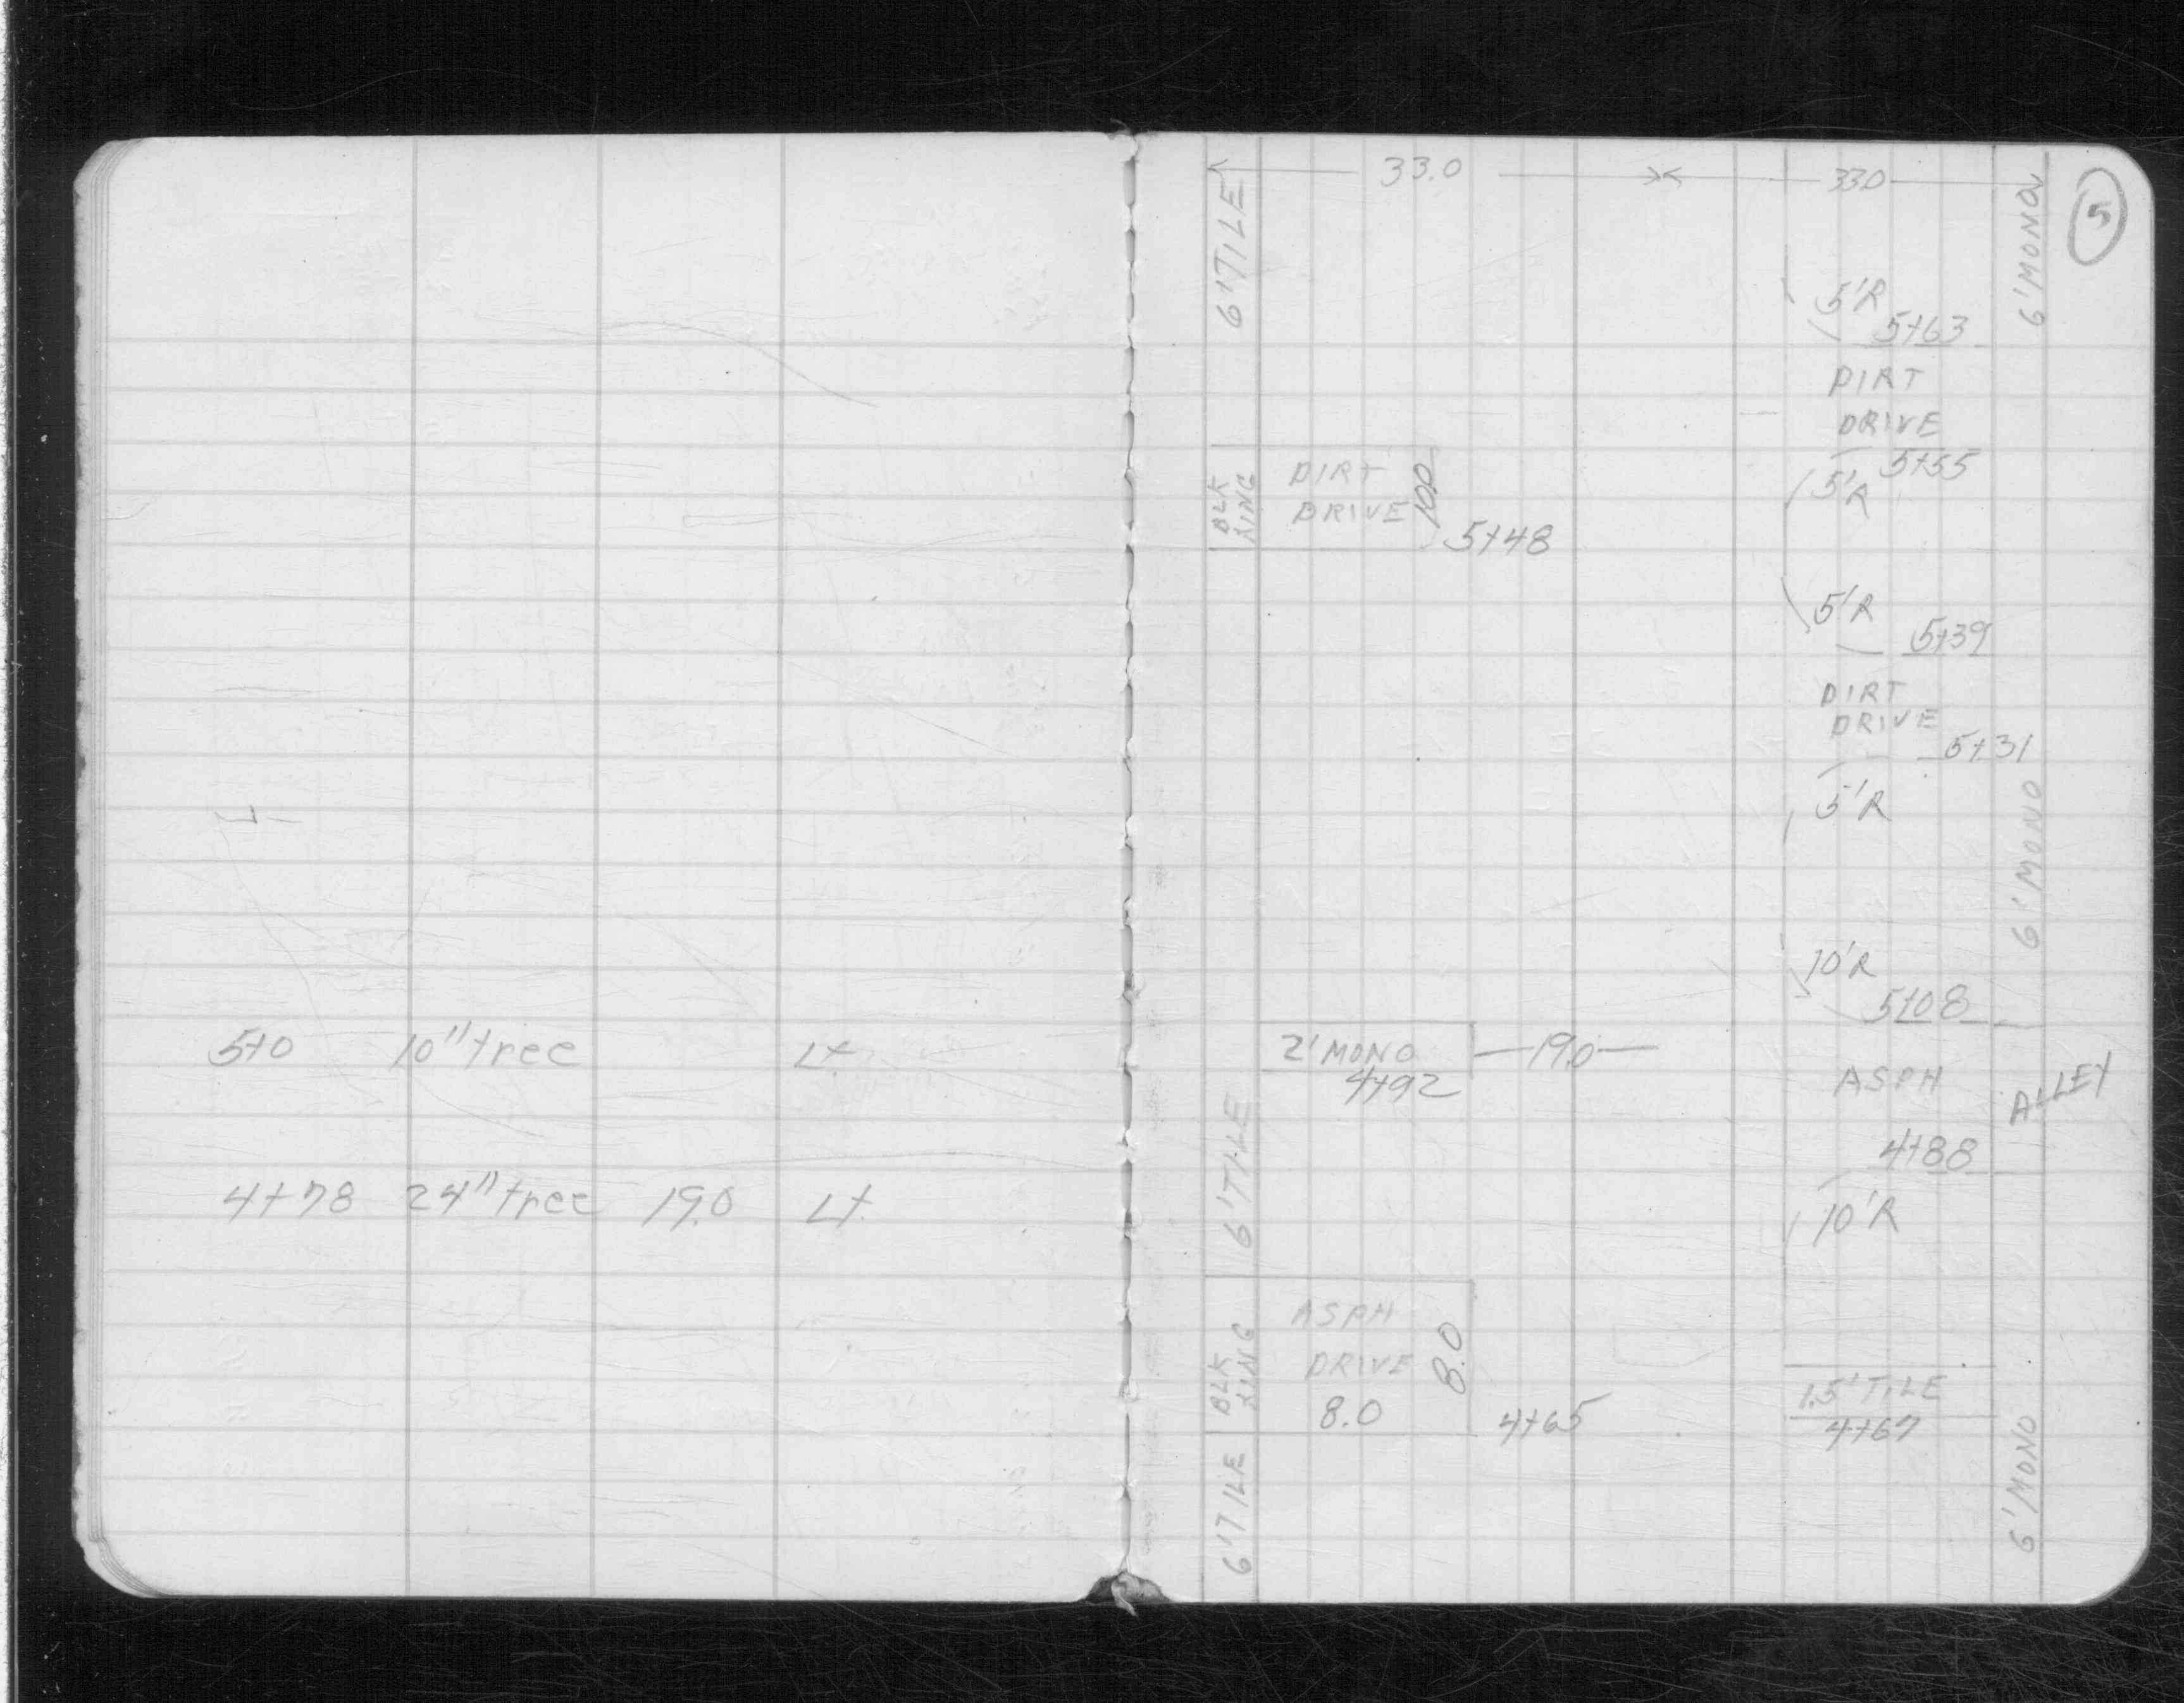 5+0 10" tree Lt
4+78 24" tree 19.0 Lt.
33.0 33.0
5
6' TILE
6' MONO
5'R
5+63
DIRT
DRIVE
5+55
5'R
BLK
XING
DIRT
DRIVE
10.0
5+48
5'R
5+39
DIRT
DRIVE
5+31
5'R
6' MONO
10'R
5+08
2' MONO
19.0
4+92
ASPH
ALLEY
4+88
10'R
6' TILE
BLK
XING
ASPH
DRIVE
8.0
8.0
4+65
1.5' TILE
4+67
6' TILE
6' MONO